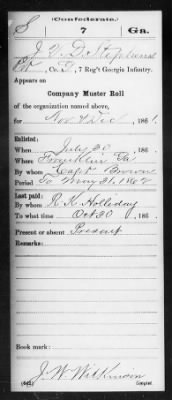 (Confederate.)
S 7 Ga.
J. V. D. Stephens
Co. , 7 Reg't Georgia Infantry.
Appears on
Company Muster Roll
of the organization named above,
for Nov & Dec , 1861.
Enlisted:
When July 30 , 186 .
Where Franklin Ga
By whom Capt Brown
Period To May 31, 1862
Last paid:
By whom R. K. Holliday
To what time Oct 30 , 186 .
Present or absent Present
Remarks:
Book mark:
J. W. Wilkinson
(642) Copyist.